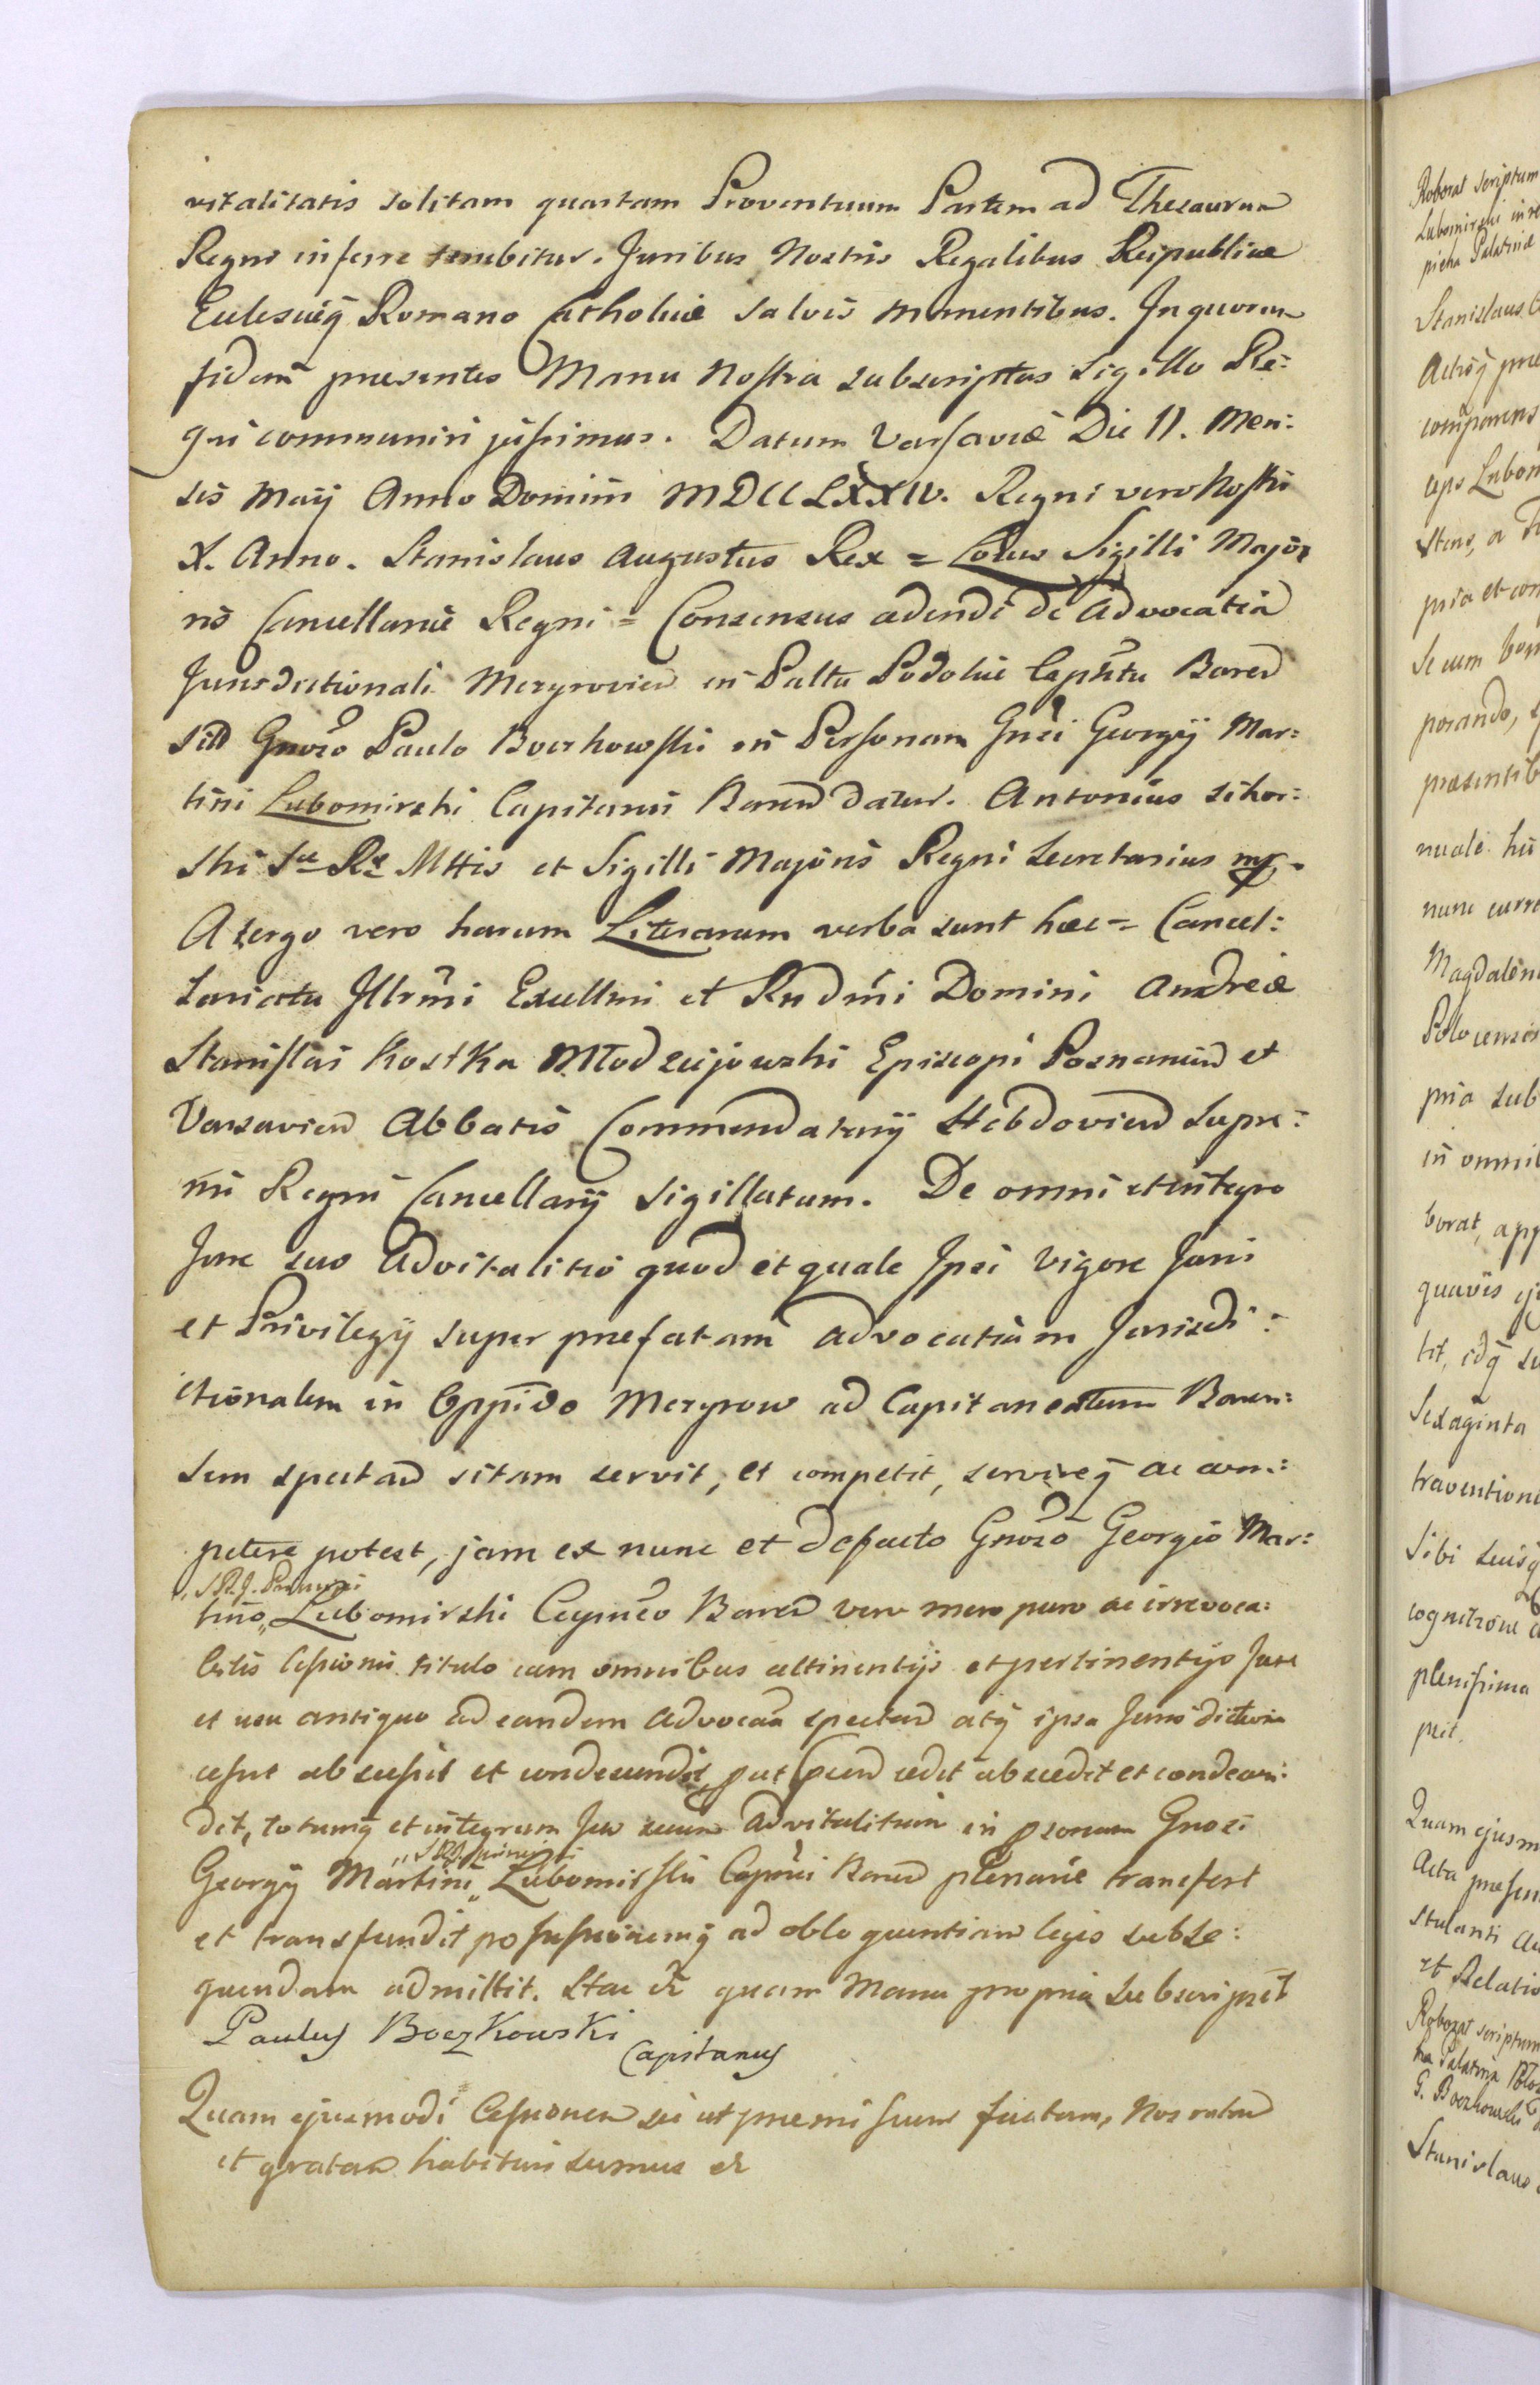 vitalitatis solitam quartam Proventuum Partem ad Thesaurum
Regni inferre tenebitur. Juribus Nostris Regalibus Reipublicæ
Eclesiæq̃ Romano Catholicæ salvis manentibus. In quorum
fidem presentes Manu Nostra subscriptas Sigillo Re:
gni communiri jussimus. Datum Varsaviæ Die 11. Men:
sis Maÿ Anno Domini MDCCLXXIV. Regni vero Nostri
X. Anno. Stanislaus Augustus Rex = Locus Sigilli Majo
ris Cancellariæ Regni = Consensus cedendi de Advocatia
Jurisdictionali Mezyrovien in Palttu Podoliæ Capnttu Baren
sitt Gnoso Paulo Boczkowski in Personam Gnsi Georgÿ Mar:
tini Lubomirski Capitanei Baren datur. Antonius Sikor:
ski Sæ Ræ Mttis et Sigilli Majoris Regni Secretarius mp.
A tergo vero harum Literarum verba sunt hæc = Cancel:
lariatu Illrmi Excellmi et Rndmi Domini Andreæ
Stanislai Kostka Młodziejowski Episcopi Posnanien et
Varsavien Abbatis Commendatarÿ Hebdovien Supre:
mi Regni Cancellarÿ Sigillatum. De omni et integro
Jure suo Advitalitio quod et quale Ipsi vigore Juris
et Privilegÿ super prefatam Advocatiam Jurisdi:
ctionalem in Oppido Mezyrow ad Capitaneatum Baren:
sem spectan sitam servit, et competit, servireq̃ ac com:
petere potest, jam ex nunc et defacto Gnoso Georgio Mar:
„S.R.J. Principi
tino„ Lubomirski Capneo Baren vero mero puro ac irrevoca:
bilis cessionis titulo cum omnibus attinentÿs et pertinentÿs Jure
et usu antiquo ad eandem Advocaã spectan atq̃ ipsa Jurisdictione
cessit abscessit et condescendit, put pnd cedit abscedit et condescen:
dit, totumq̃ et integrum Jus suum Advitalitium in psonam Gnosi
„S.R.J. Principis
Georgÿ Martini„ Lubomirski Capnei Baren plenarie transfert
et transfundit possessionemq̃ ad obloquentiam legis subse:
quendam admittit. Stae &c quam Manu propria subscripsit
Paulus Boczkowski
Capitaneus
Quam ejusmodi Cessionem sic ut premissum factam, Nos ratam
et gratam habituri sumus &c

Roborat scriptum
Lubomirski in re
picha Palatinæ
Stanislaus
Actisq̃ præ
comparens
ceps Lubom
stens, a
pria et con
se cum bon
porando,
præsentib
nuale hu
nunc curre
Magdalen
Polocensis
pria sub
in omnib
borat, app
quavis ej
tit, idq̃ su
Sexaginta
traventioni
sibi suisq̃
cognitione
plenissima
pit.
Quam ejusm
Acta præsen
stulanti
et Relatio
Roborat scriptum
ha Palatina
G. Boczkowski
Stanislaus